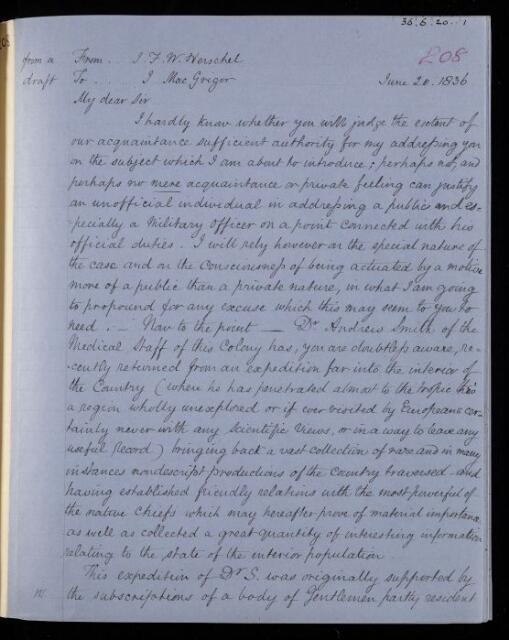 36.6.20..1
208
from a From... J. F. W. Herschel
draft To... J MacGrigor June 20. 1836
My dear Sir
I hardly know whether you will judge the extent of
our acquaintance sufficient authority for my addressing you
on the subject which I am about to introduce; perhaps not, and
perhaps no mere acquaintance or private feeling can justify
an unofficial individual in addressing a public and es-
-pecially a Military Officer on a point connected with his
official duties. I will rely however on the special nature of
the case and on the Consciousness of being actuated by a motive
more of a public than a private nature, in what I am going
to propound for any excuse which this may seem to you to
need. — Now to the point — Dr. Andrew Smith of the
Medical Staff of this Colony has, you are doubtless aware, re-
-cently returned from an expedition far into the interior of
the Country (when he has penetrated almost to the tropic thro'
a region wholly unexplored or if ever visited by Europeans cer-
tainly never with any Scientific Views, or in a way to leave any
useful Record) bringing back a vast collection of rare and in many
instances nondescript productions of the Country traversed and
having established friendly relations with the most powerful of
the native Chiefs which may hereafter prove of material importance,
as well as collected a great quantity of interesting information
relating to the state of the interior population.
This expedition of Dr S. was originally supported by
the subscriptions of a body of Gentlemen partly resident